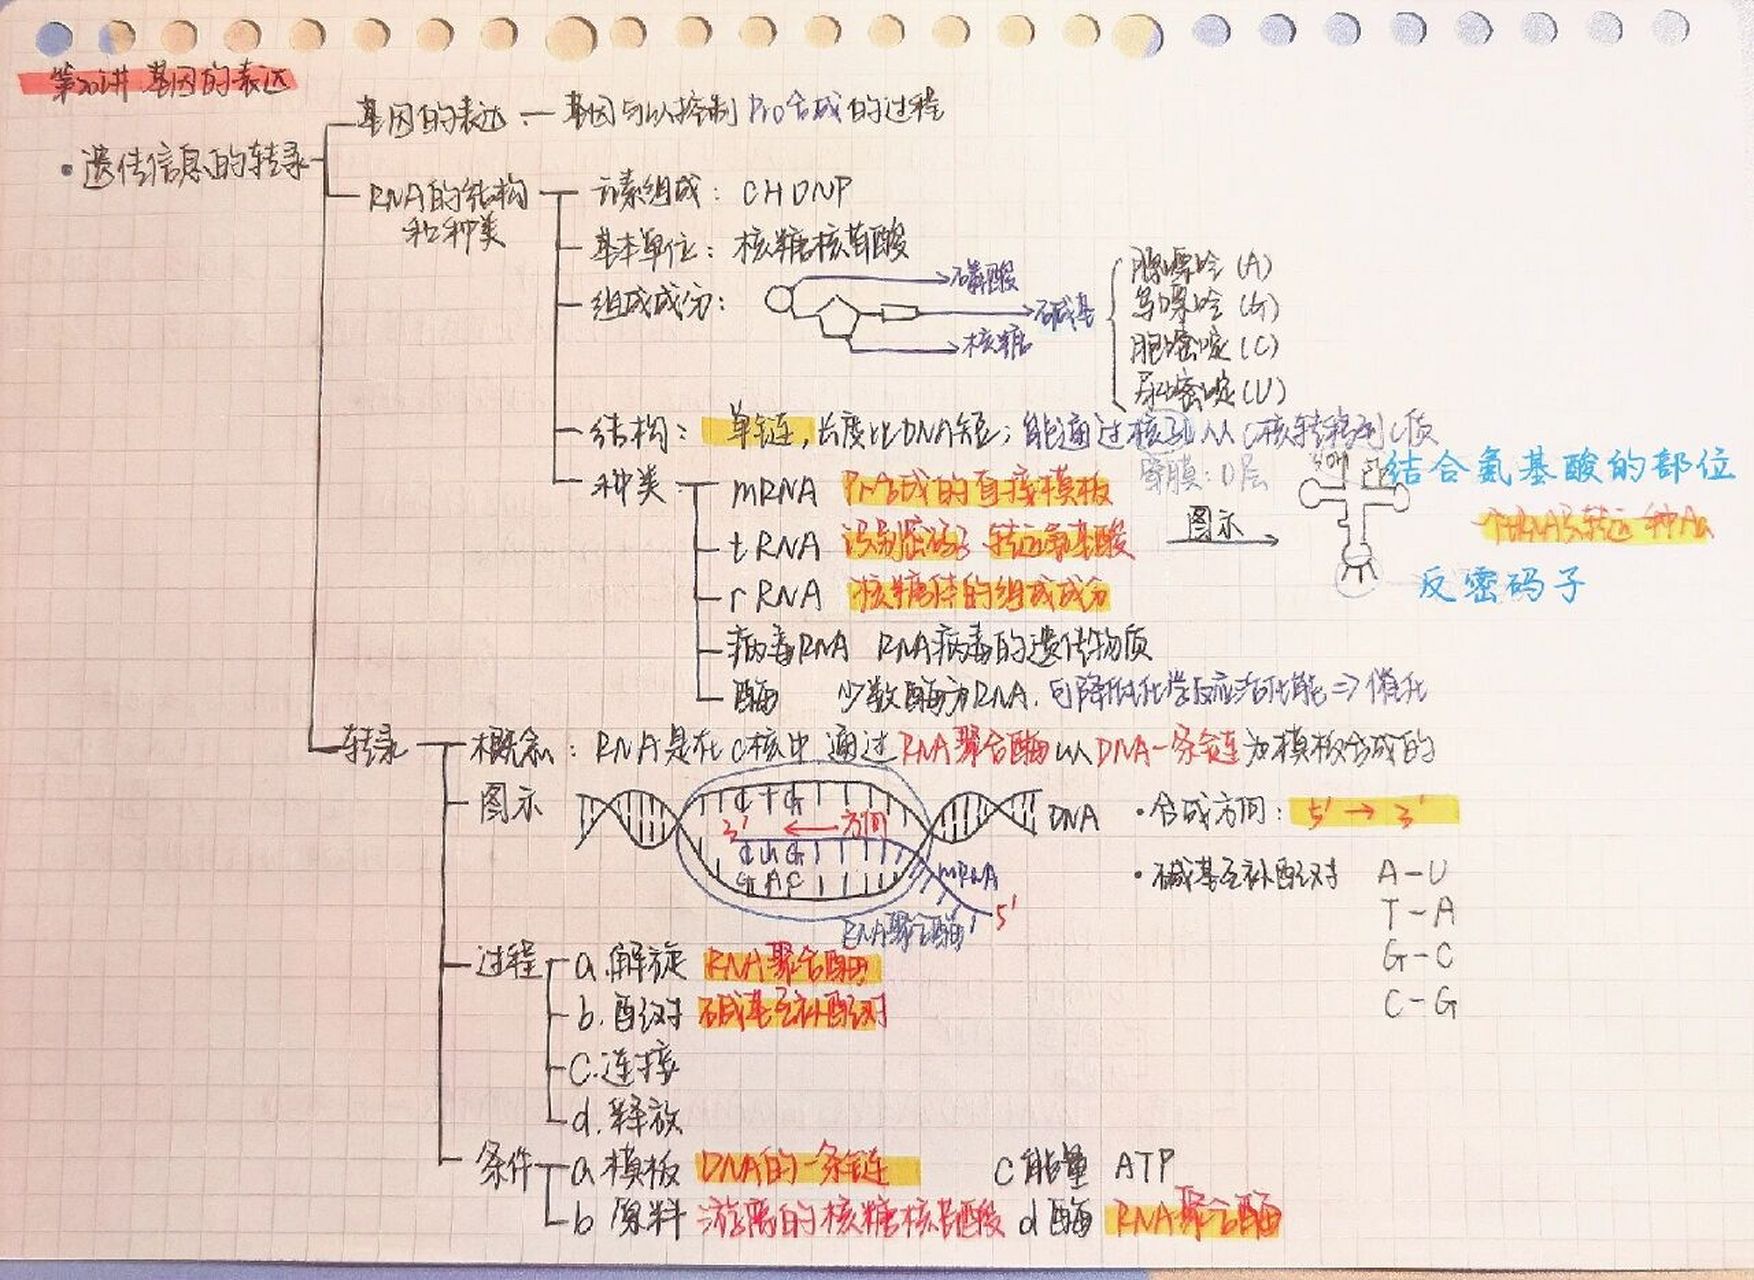 第20讲 基因的表达
基因的表达:— 基因可以控制Pro合成的过程
·遗传信息的转录
RNA的结构
和种类
元素组成:CHONP
基本单位:核糖核苷酸
组成成分:
磷酸
碱基
核糖
腺嘌呤(A)
鸟嘌呤(G)
胞嘧啶(C)
尿嘧啶(U)
结构:单链,长度比DNA短;能通过核孔从C核转移到C质
穿膜:0层
种类
mRNA Pro合成的直接模板
tRNA 识别密码子 转运氨基酸
图示
OH
结合氨基酸的部位
一个tRNA只转运一种Aa
反密码子
rRNA 核糖体的组成成分
病毒RNA RNA病毒的遗传物质
酶 少数酶为RNA.可降低化学反应活化能⇒催化
转录
概念:RNA是在C核中 通过RNA聚合酶以DNA一条链为模板合成的
图示
C T G
DNA
3' ← 方向
C U G
G A C
mRNA
5'
RNA聚合酶
·合成方向:5' → 3'
·碱基互补配对 A-U
T-A
G-C
C-G
过程
a.解旋 RNA聚合酶
b.配对 碱基互补配对
C.连接
d.释放
条件
a 模板 DNA的一条链
b 原料 游离的核糖核苷酸
C 能量 ATP
d 酶 RNA聚合酶